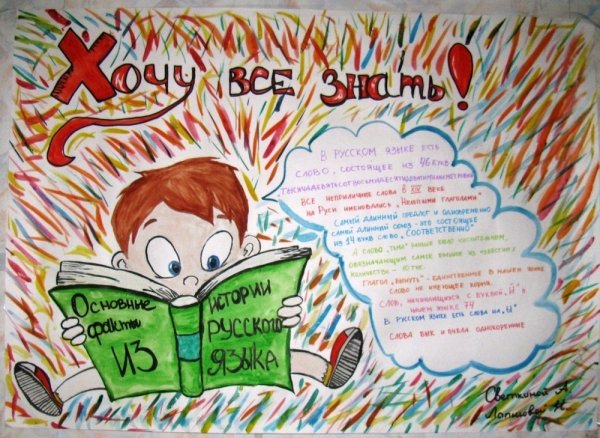 Хочу все знать!
В русском языке есть
слово, состоящее из 46 букв
Все неприличные слова в XIX веке
на Руси именовались „Нелепыми глаголами"
Самый длинный предлог и одновременно
самый длинный союз - это состоящее
из 14 букв слово „соответственно"
А слово „тьма" раньше было числительным,
обозначающим самое большое из известных
количество -
Глагол „вынуть" - единственное в нашем языке
слово не имеющее корня.
Слов, начинающихся с буквой „Й" в
нашем языке 74
В русском языке есть слова на „Ы"
Слова бык и пчела однокоренные
Основные
факты
из
истории
русского
языка
Светкиной А.